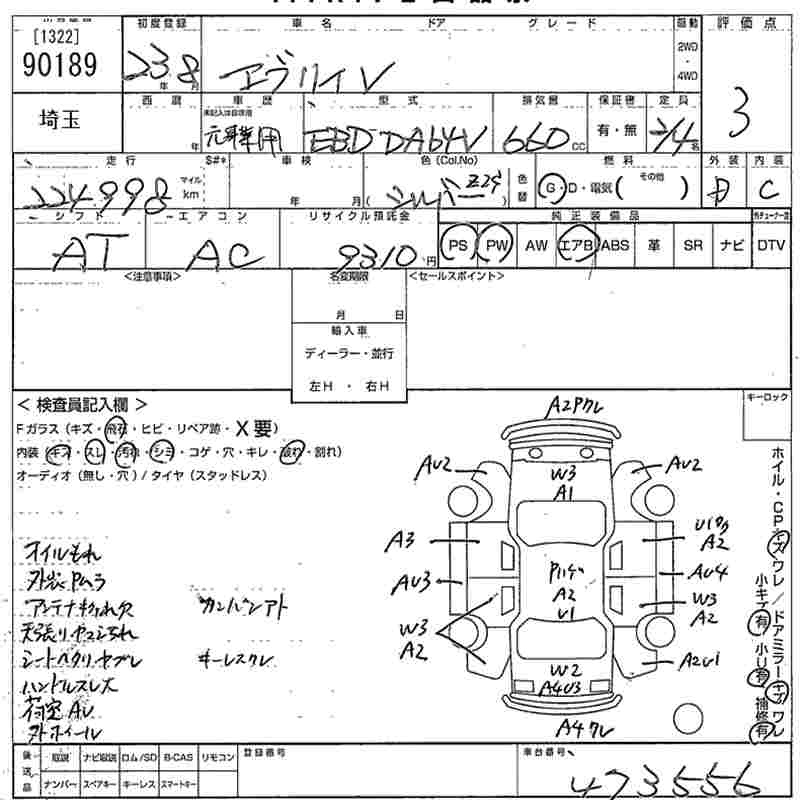 [1322]
90189
埼玉
初度登録
23 8
年 月
車名 ドア グレード
エブリイV
駆動
2WD
・
4WD
評価点
3
西暦
年
車歴
未記入は自家用
元事業用
型式
EBD DA64V
排気量
660 CC
保証書
有・無
定員
2/4 名
走行
224998
マイル
km
S#*
車検
年 月
色(Col.No)
( シルバー Z2S )
色替
燃料
G・D・電気( その他 )
外装
D
内装
C
シフト
AT
エアコン
AC
リサイクル預託金
9310 円
純正装備品
PS PW AW エアB ABS 革 SR ナビ DTV
<注意事項>
名変期限
月 日
輸入車
ディーラー・並行
左H ・ 右H
<セールスポイント>
キーロック
<検査員記入欄>
Fガラス(キズ・飛石・ヒビ・リペア跡・X要)
内装(キズ・スレ・汚れ・シミ・コゲ・穴・キレ・破れ・割れ)
オーディオ(無し・穴)/タイヤ(スタッドレス)
オイルもれ
外装Pムラ
アンテナ
カンバンアト
シートヘタリ ヤブレ
キーレスクレ
ハンドルスレ大
荷室AU
外ホイール
A2Pワレ
AU2
W3
A1
AU2
A3
A2
AU3
P
A2
U1
AU4
W3
A2
W3
A2
W2
A4U3
A2U1
A4ワレ
ホイル・CPキズワレ/ドアミラーキズワレ
小キズ有 小U有 補修有
後送品
取説 ナビ取説 ロム/SD B-CAS リモコン
ナンバー スペアキー キーレス スマートキー
登録番号
車台番号
473556